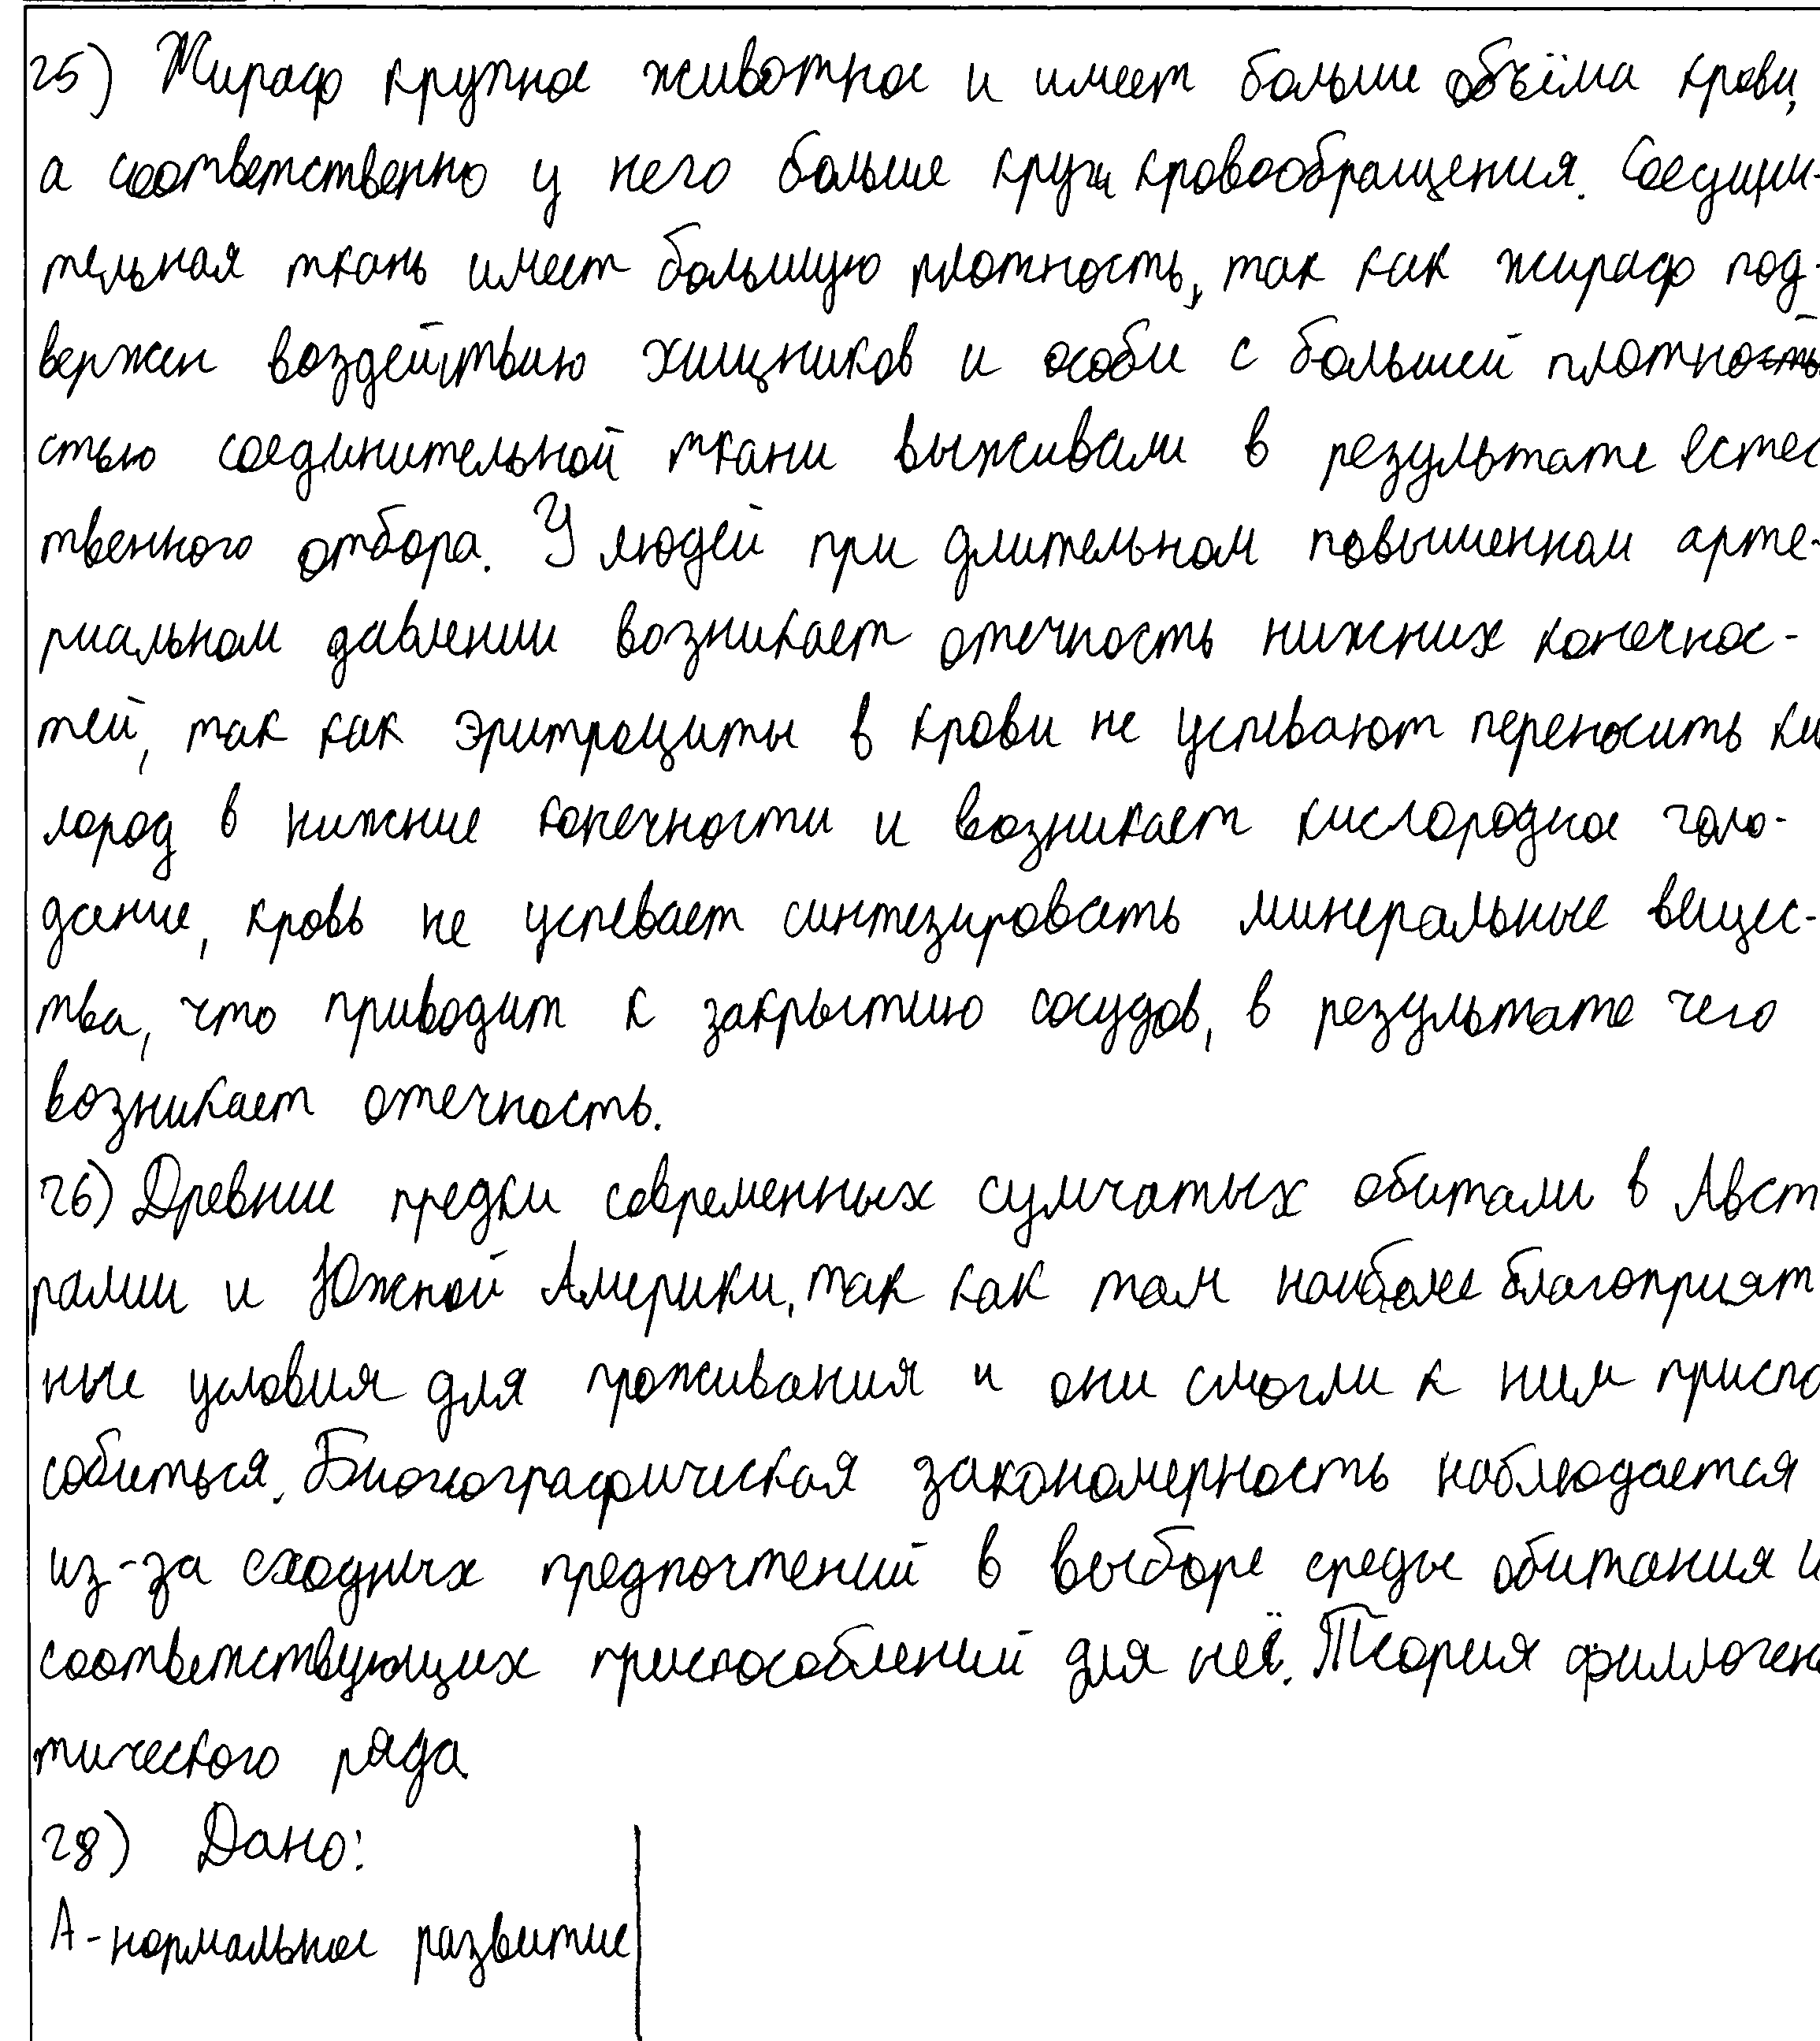 25) Жираф крупное животное и имеет больше объёма крови,
а соответственно у него больше круги кровообращения. Соедини-
тельная ткань имеет большую плотность, так как жираф под-
вержен воздействию хищников и особи с большей плотно
стью соединительной ткани выживали в результате естес
твенного отбора. У людей при длительном повышенном арте-
риальном давлении возникает отечность нижних конечнос-
тей, так как эритроциты в крови не успевают переносить ки
лород в нижние конечности и возникает кислородное голо-
дание, кровь не успевает синтезировать минеральные вещес-
тва, что приводит к закрытию сосудов, в результате чего
возникает отечность.
26) Древние предки современных сумчатых обитали в Авст
ралии и Южной Америки, так как там наиболее благоприят
ные условия для проживания и они смогли к ним приспо
собиться. Биогеографическая закономерность наблюдается
из-за сходных предпочтений в выборе среды обитания и
соответствующих приспособлений для неё. Теория филлогене
тического ряда
28) Дано:
А-нормальное развитие